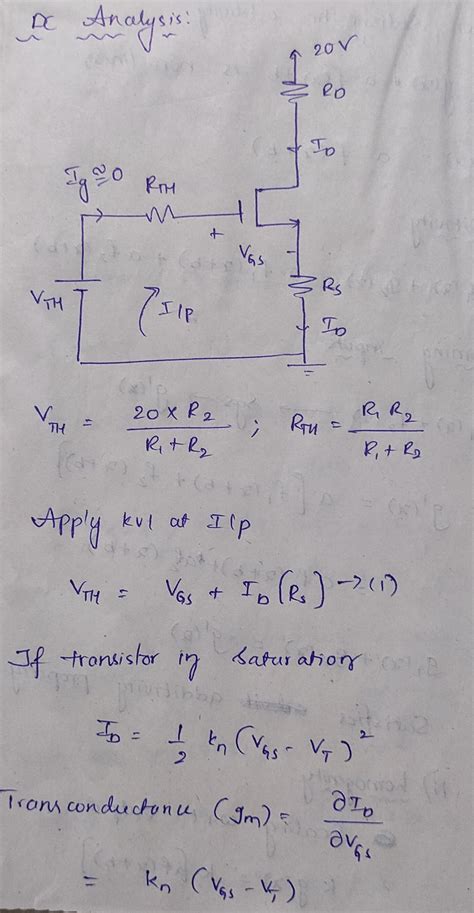 DC Analysis:
20V
RD
ID
Ig ≅ 0
RTH
+
VGS
-
RS
VTH
I/P
ID
VTH = 20 × R2 / R1 + R2 ; RTH = R1 R2 / R1 + R2
Apply kvl at I/P
VTH = VGS + ID (RS) → (1)
If transistor in Saturation
ID = 1/2 kn (VGS - VT)^2
Transconductance (gm) = ∂ID / ∂VGS
= kn (VGS - VT)